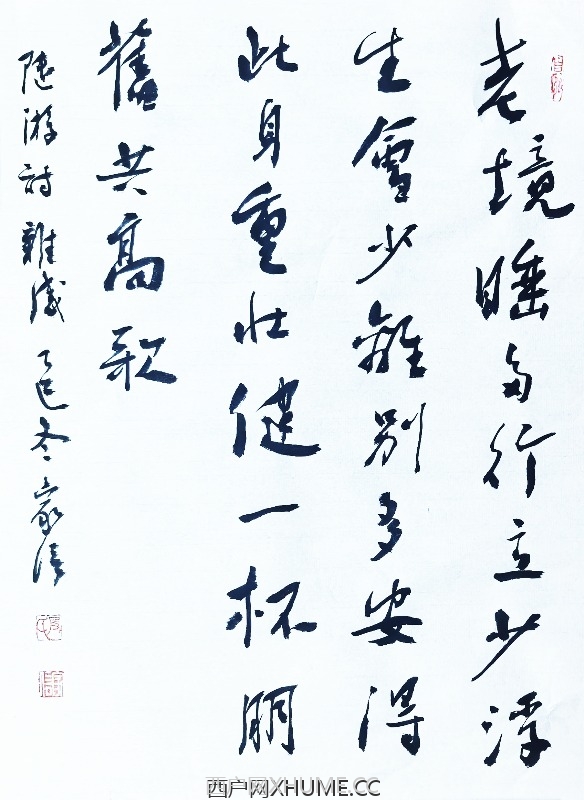 老境睡多行立少浮
生會少離別多安得
此身重壮健一杯朋
舊共高歌
陸游詩雜感乙巳冬家
西户网XHUME.CC